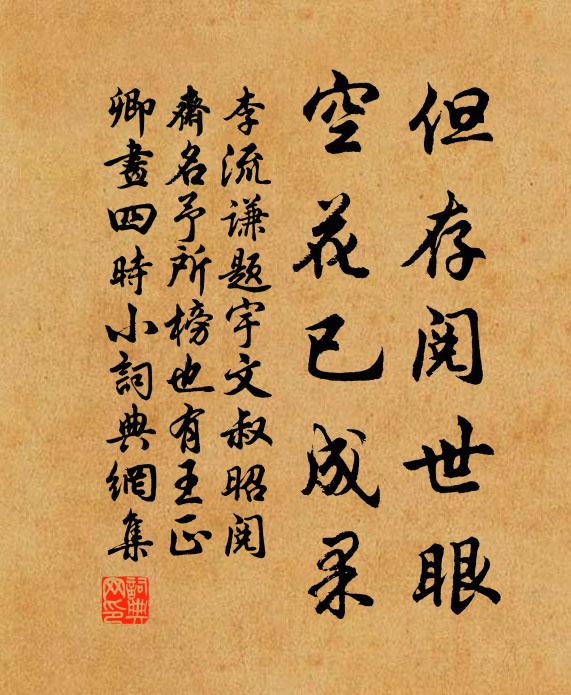 但存阅世眼
空花已成果
李流谦题宇文叔昭阅
齋名予所榜也有王正
卿畫四時小詞典網集
詞典網印